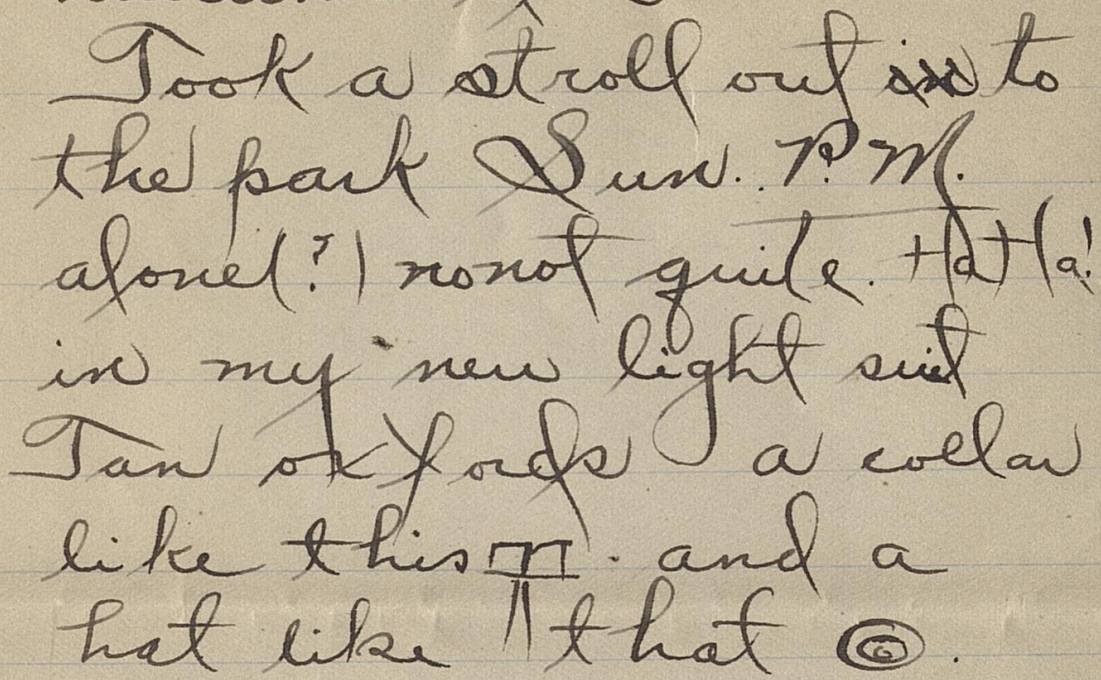 Took a stroll out to
the park Sun. P.M.
alone(?) no not quite. Ha Ha!
in my new light suit
Tan oxfords a collar
like this . and a
hat like that .